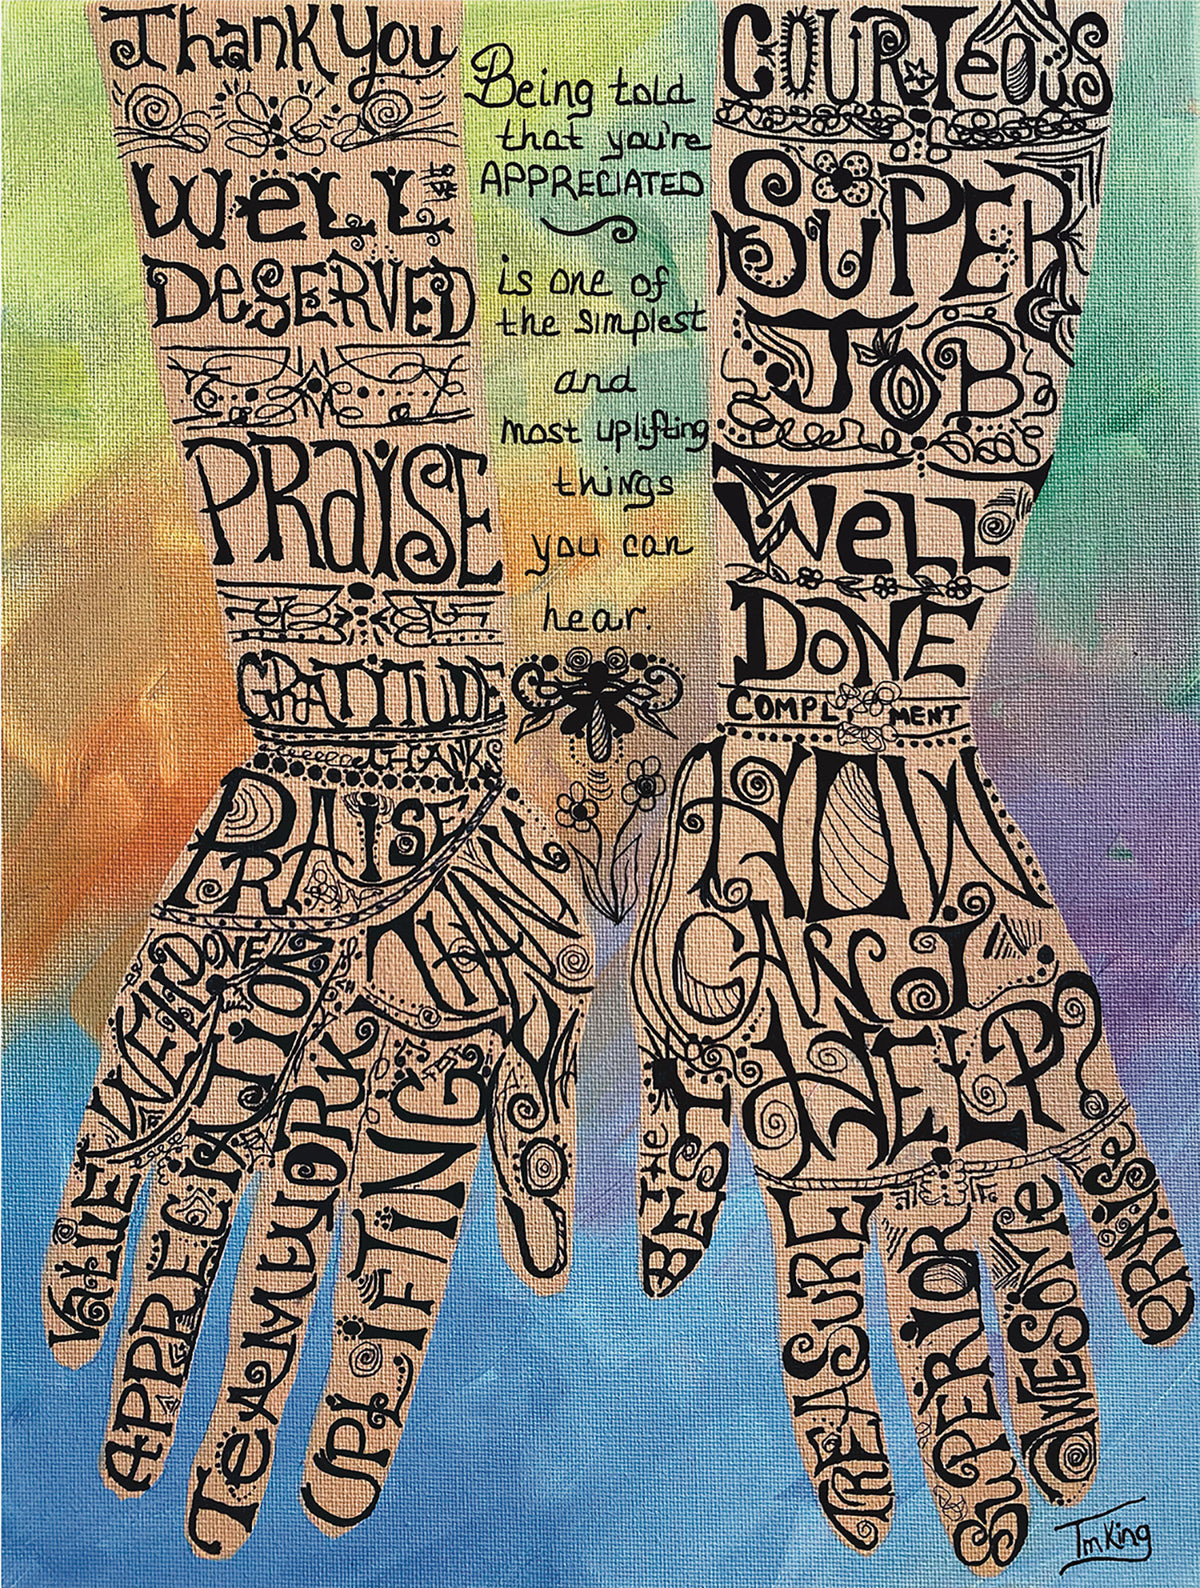 Thank You
WeLL
DeSERVED
PRaiSE
GRATITUDE
THANK
PRAISE
THANK
WEll DONE
VaLUE
APPRECIATION
TeAMWORK
UPLIFTING
Being told
that you're
APPRECIATED
is one of
the simplest
and
most uplifting
things
you can
hear.
COURTeOUS
SuPER
JOB
WeLL
DoNE
COMPLIMENT
HOW
CAN I
HELP
THe
BEST
TREASURE
SUPERIOR
AWESOMe
PRAISe
TmKing